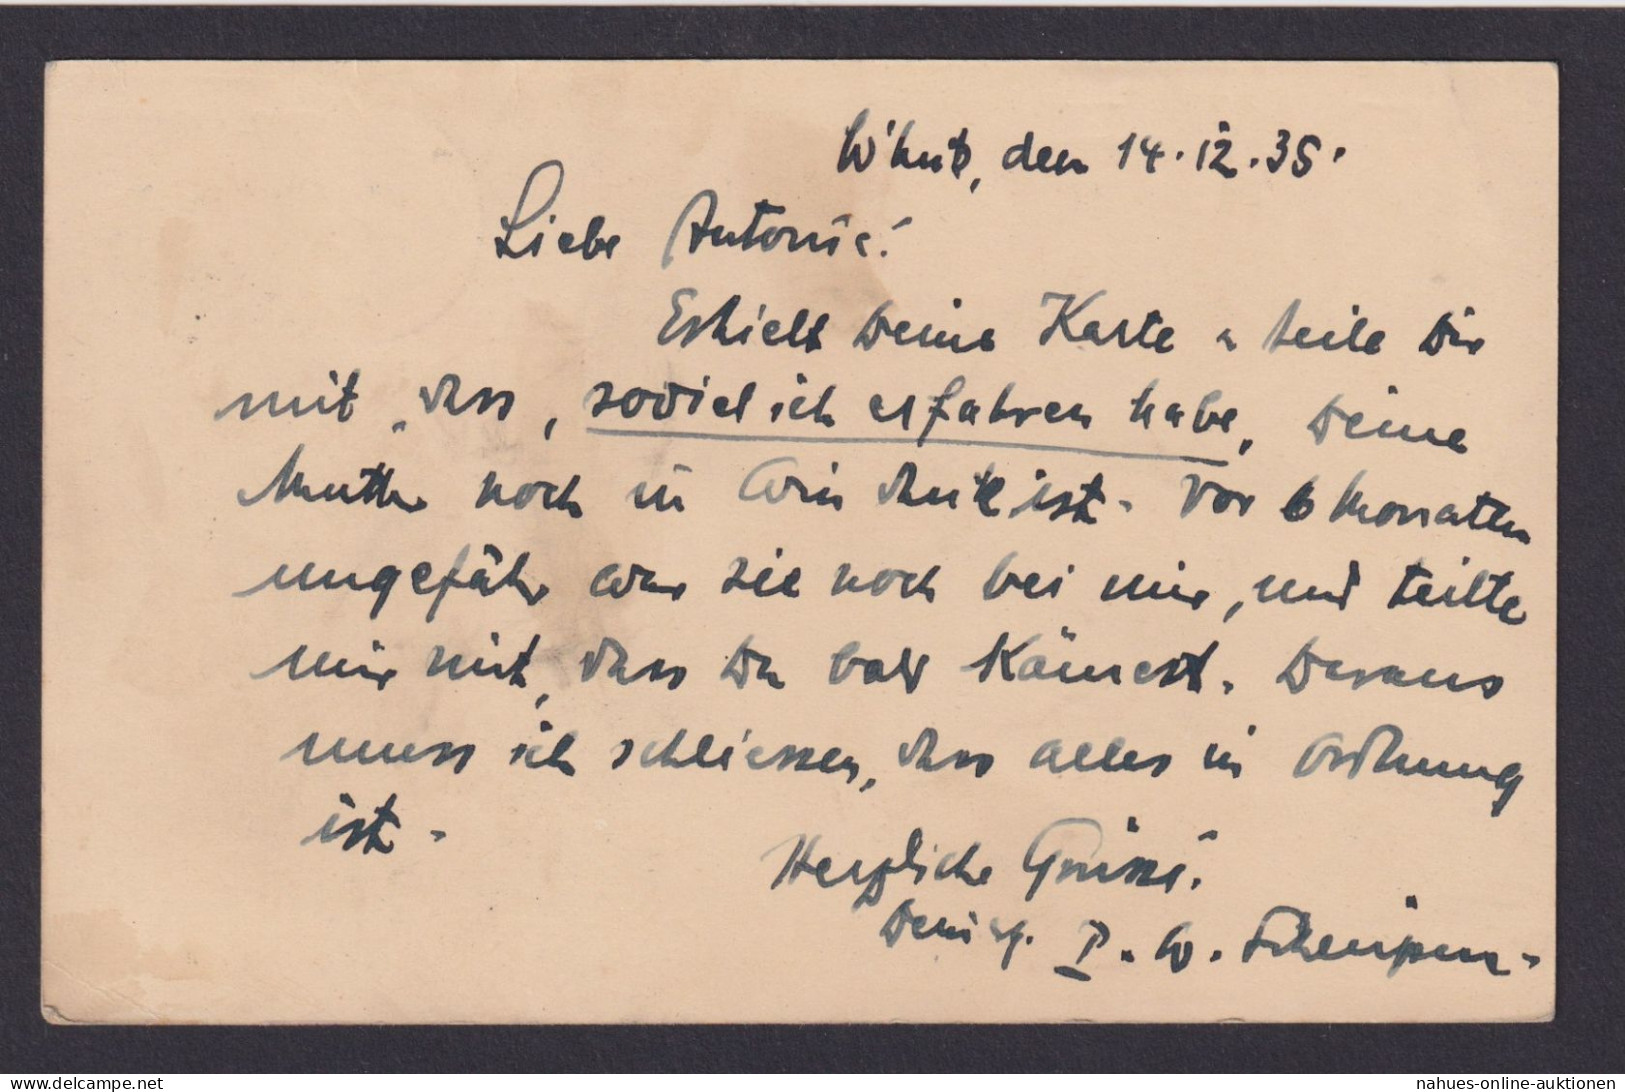 W'huk, den 14.12.35.
Liebe Antonie!
Erhielt Deine Karte u teile Dir
mit, dass, soviel ich erfahren habe, Deine
Mutter noch in Windhuk ist. Vor 6 Monaten
ungefähr war sie noch bei mir, und teilte
mir mit, dass Du bald kämest. Daraus
muss ich schliessen, dass alles in Ordnung
ist.
Herzliche Grüsse.
Dein P. W.
nahues-online-auktionen
nahues-online-auktionen